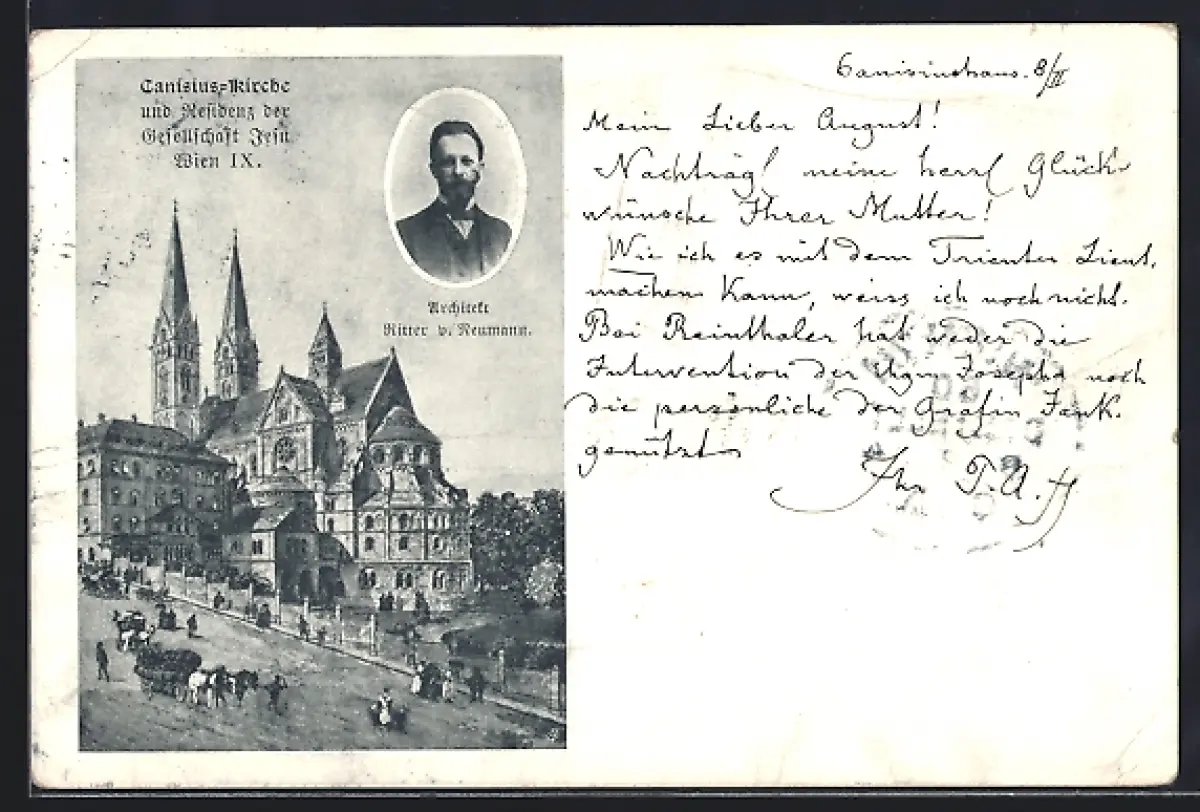 Canisius-Kirche
und Residenz der
Gesellschaft Jesu
Wien IX.
Architekt
Ritter v. Neumann.
Canisiushaus. 8/II
Mein Lieber August!
Nachträgl meine herzl Glück-
wünsche Ihrer Mutter!
Wie ich es mit dem Trienter Lieut.
machen kann, weiss ich noch nicht.
Bei Reinthaler hat weder die
Intervention der Josepha noch
die persönliche der Gräfin
genützt
Ihr